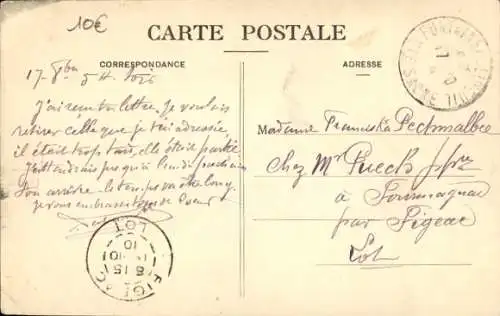 10€
CARTE POSTALE
CORRESPONDANCE
ADRESSE
17 - 8bre 5 H. Soir
J'ai reçu ta lettre. Je voulais
retirer celle que je t'ai adressée,
il était trop tard, elle était partie
J'attendrais jusqu'à Lundi prochain
Ton arrivée. le temps va être long.
Je vous embrasse tous de Coeur
Madame Franciska Pechmalbec
chez Mr Puech pfre
à Fourmagnac
par Figeac
Lot
FIGEAC
LOT
8 15
10